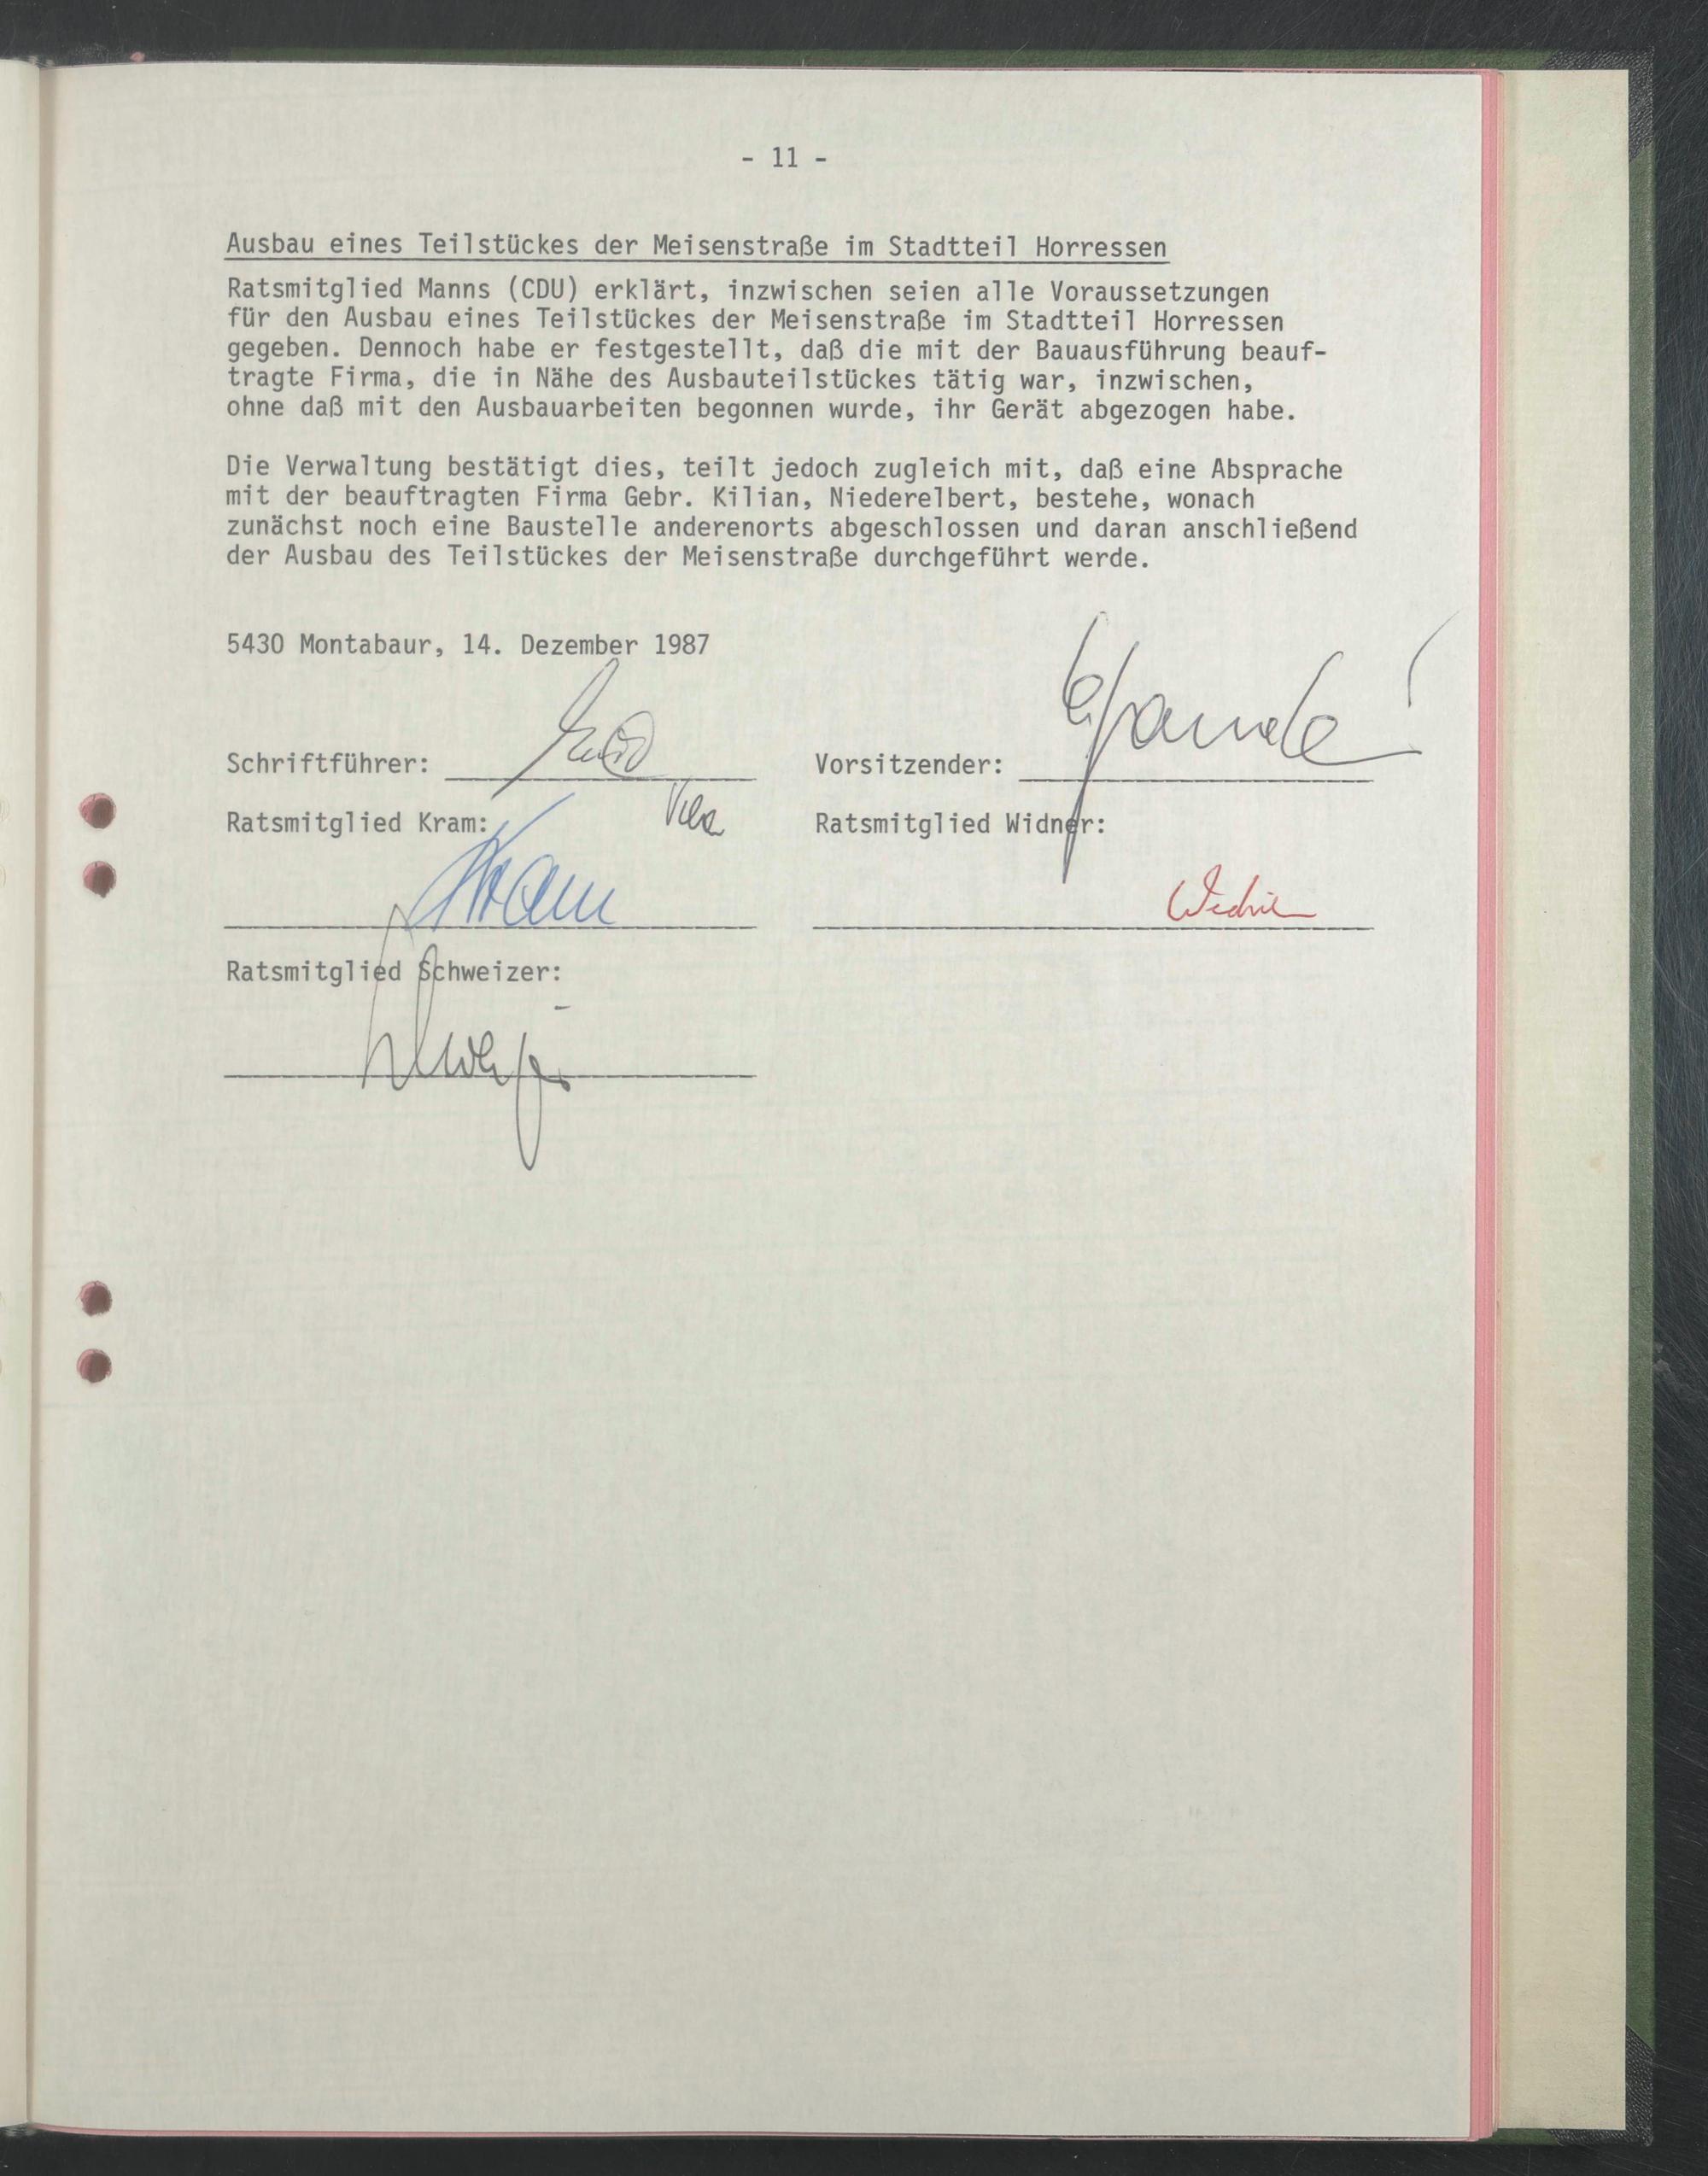 - 11 -
Ausbau eines Teilstückes der Meisenstraße im Stadtteil Horressen
Ratsmitglied Manns (CDU) erklärt, inzwischen seien alle Voraussetzungen
für den Ausbau eines Teilstückes der Meisenstraße im Stadtteil Horressen
gegeben. Dennoch habe er festgestellt, daß die mit der Bauausführung beauf-
tragte Firma, die in Nähe des Ausbauteilstückes tätig war, inzwischen,
ohne daß mit den Ausbauarbeiten begonnen wurde, ihr Gerät abgezogen habe.
Die Verwaltung bestätigt dies, teilt jedoch zugleich mit, daß eine Absprache
mit der beauftragten Firma Gebr. Kilian, Niederelbert, bestehe, wonach
zunächst noch eine Baustelle anderenorts abgeschlossen und daran anschließend
der Ausbau des Teilstückes der Meisenstraße durchgeführt werde.
5430 Montabaur, 14. Dezember 1987
Schriftführer: Vorsitzender:
Ratsmitglied Kram: Ratsmitglied Widner:
Kram
Ratsmitglied Schweizer: